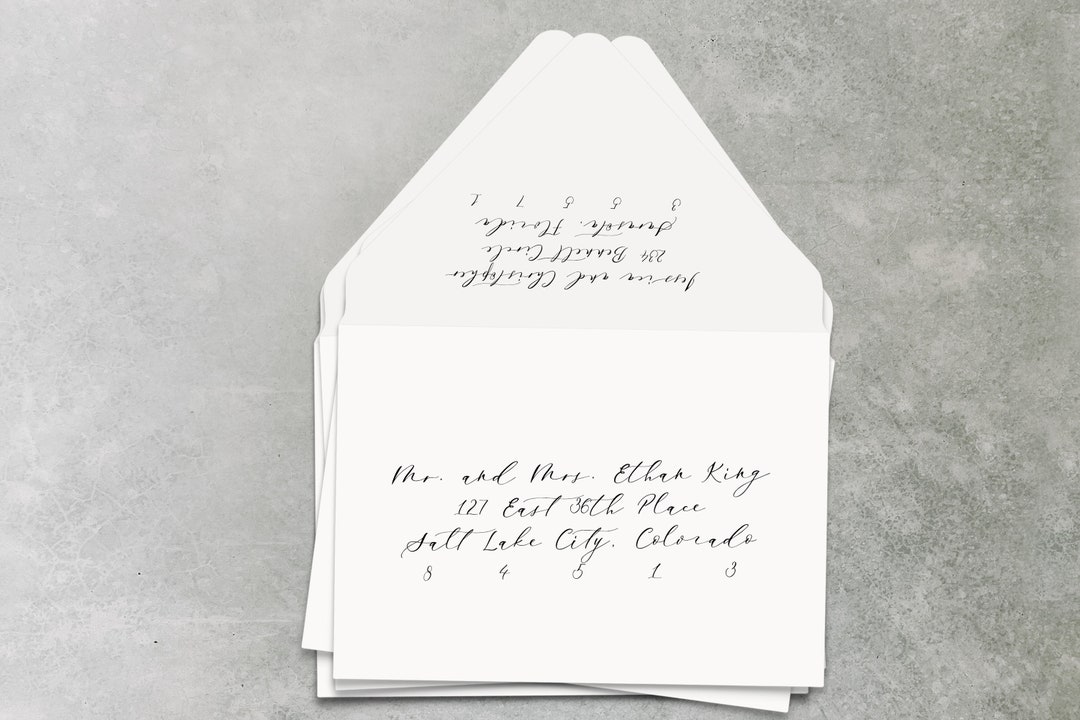 Jessica and Christopher
234 Bennett Circle
Sarasota, Florida
3 5 5 7 1
Mr. and Mrs. Ethan King
127 East 36th Place
Salt Lake City, Colorado
8 4 5 1 3